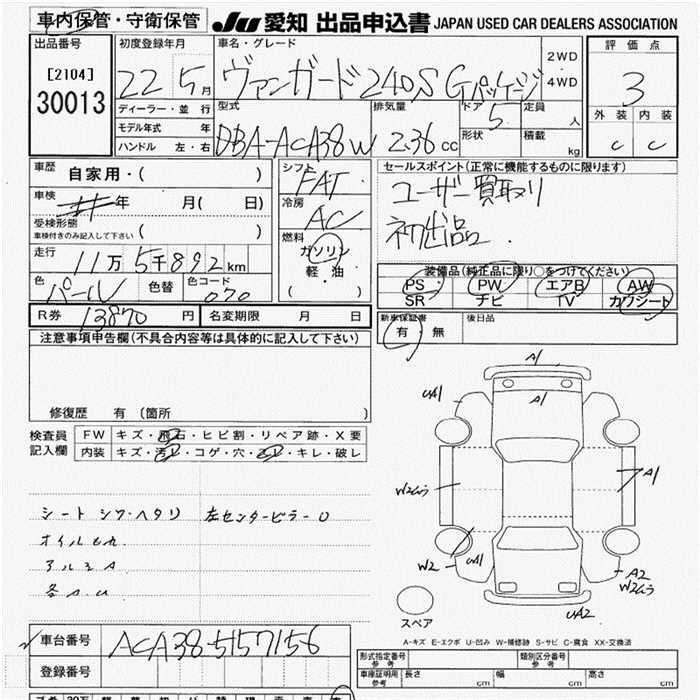 車内保管・守衛保管 JU 愛知 出品申込書 JAPAN USED CAR DEALERS ASSOCIATION
出品番号 初度登録年月 車名・グレード 評価点
[2104] 22 5月 ヴァンガード 240S Gパッケージ 2WD 4WD 3
30013 ディーラー・並行 型式 排気量 ドア 5 定員 人 外装 内装
モデル年式 年 DBA-ACA38W 2.36cc 形状 積載 kg C C
ハンドル 左・右
車歴 自家用・( ) シフト FAT セールスポイント(正常に機能するものに限ります)
車検 年 月( 日) 冷房 AC ユーザー買取り
受検形態 ( ) 初出品.
車検付きのみ記入して下さい 燃料 ガソリン
走行 11万5千892km 軽・油 装備品(純正品に限り○をつけてください)
色 パール 色替 色コード 070 ( ) PS PW エアB AW
SR ナビ TV カワシート
R券 13870円 名変期限 月 日 新車保証書 後日品
有 無
注意事項申告欄(不具合内容等は具体的に記入して下さい)
修復歴 有 (箇所 )
検査員 FW キズ・飛石・ヒビ割・リペア跡・X要
記入欄 内装 キズ・汚レ・コゲ・穴・スレ・キレ・破レ
A1
UA1 A1
W2ムラ A1
W2 UA1 A2
W2ムラ
UA2
シート シワ・ヘタリ 左センターピラーU
オイルモレ
アルミA
各A.U
スペア
A-キズ E-エクボ U-凹み W-補修跡 S-サビ C-腐食 XX-交換済
車台番号 ACA38-5157156
登録番号
型式指定番号 参考 類別区分番号 参考
車庫証明用 参考 長さ cm 幅 cm 高さ cm